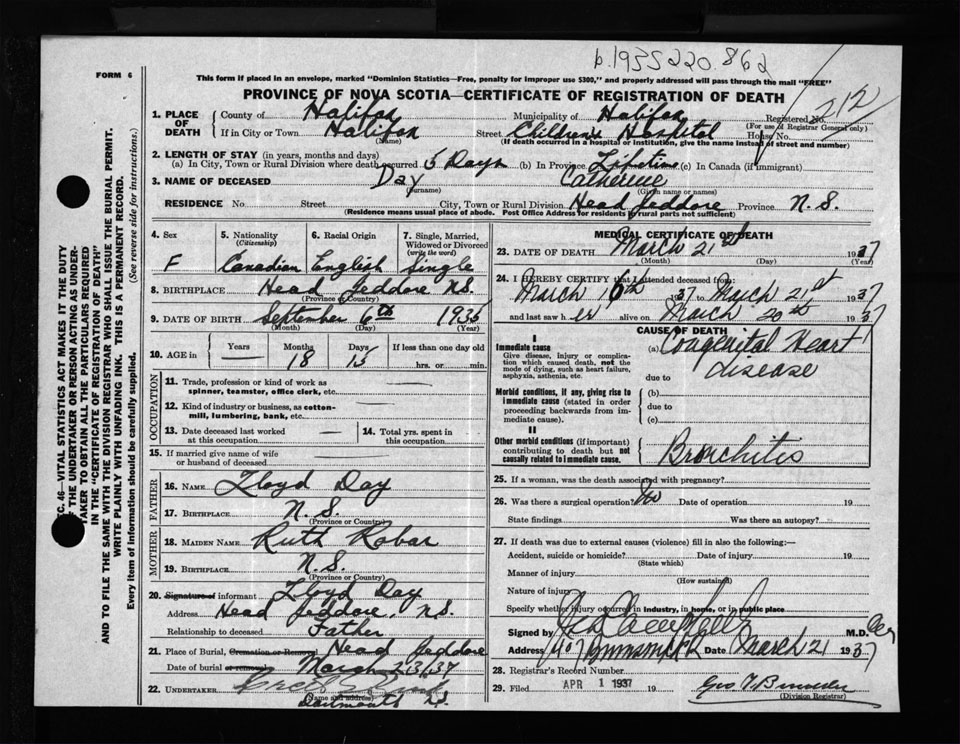 b.1935 220.862
FORM 6
This form if placed in an envelope, marked "Dominion Statistics—Free, penalty for improper use $300," and properly addressed will pass through the mail "FREE"
PROVINCE OF NOVA SCOTIA—CERTIFICATE OF REGISTRATION OF DEATH
212
SEC. 46—VITAL STATISTICS ACT MAKES IT THE DUTY
OF THE UNDERTAKER OR PERSON ACTING AS UNDER-
TAKER TO OBTAIN ALL THE PARTICULARS REQUIRED
IN THE "CERTIFICATE OF REGISTRATION OF DEATH"
AND TO FILE THE SAME WITH THE DIVISION REGISTRAR WHO SHALL ISSUE THE BURIAL PERMIT.
WRITE PLAINLY WITH UNFADING INK. THIS IS A PERMANENT RECORD.
Every item of information should be carefully supplied. (See reverse side for instructions.)
1. PLACE OF DEATH County of Halifax Municipality of Halifax Registered No.
(For use of Registrar General only)
If in City or Town Halifax Street Children's Hospital House No.
(Name) (If death occurred in a hospital or institution, give the name instead of street and number)
2. LENGTH OF STAY (in years, months and days)
(a) In City, Town or Rural Division where death occurred 5 Days (b) In Province Lifetime (c) In Canada (if immigrant)
3. NAME OF DECEASED Day Catherine
(Surname) (Given name or names)
RESIDENCE No. Street City, Town or Rural Division Head Jeddore Province N.S.
(Residence means usual place of abode. Post Office Address for residents in rural parts not sufficient)
4. Sex 5. Nationality (Citizenship) 6. Racial Origin 7. Single, Married, Widowed or Divorced (write the word)
F Canadian English Single
8. BIRTHPLACE Head Jeddore N.S.
(Province or Country)
9. DATE OF BIRTH September 6th 1935
(Month) (Day) (Year)
10. AGE in Years Months Days If less than one day old
— 18 15 hrs. or min.
OCCUPATION
11. Trade, profession or kind of work as spinner, teamster, office clerk, etc. —
12. Kind of industry or business, as cotton-mill, lumbering, bank, etc. —
13. Date deceased last worked at this occupation — 14. Total yrs. spent in this occupation —
15. If married give name of wife or husband of deceased —
FATHER
16. NAME Lloyd Day
17. BIRTHPLACE N.S.
(Province or Country)
MOTHER
18. MAIDEN NAME Ruth Robar
19. BIRTHPLACE N.S.
(Province or Country)
20. Signature of informant Lloyd Day
Address Head Jeddore, N.S.
Relationship to deceased Father
21. Place of Burial, Cremation or Removal Head Jeddore
Date of burial or removal March 23/37
22. UNDERTAKER
(Name and address)
Dartmouth N.S.
MEDICAL CERTIFICATE OF DEATH
23. DATE OF DEATH March 21st 1937
(Month) (Day) (Year)
24. I HEREBY CERTIFY that I attended deceased from:
March 16th 1937 to March 21st 1937
and last saw her alive on March 20th 1937
CAUSE OF DEATH
I
Immediate cause (a) Congenital Heart disease
Give disease, injury or complication which caused death, not the mode of dying, such as heart failure, asphyxia, asthenia, etc. due to
Morbid conditions, if any, giving rise to immediate cause (stated in order proceeding backwards from immediate cause). (b)
due to
(c)
II
Other morbid conditions (if important) contributing to death but not causally related to immediate cause. Bronchitis
25. If a woman, was the death associated with pregnancy?
26. Was there a surgical operation? No Date of operation 19
State findings Was there an autopsy?
27. If death was due to external causes (violence) fill in also the following:—
Accident, suicide or homicide? Date of injury 19
(State which)
Manner of injury
(How sustained)
Nature of injury
Specify whether injury occurred in industry, in home, or in public place
Signed by M.D.
Address 407 Brunswick Date March 21 1937
28. Registrar's Record Number
29. Filed APR 1 1937 19
(Division Registrar)